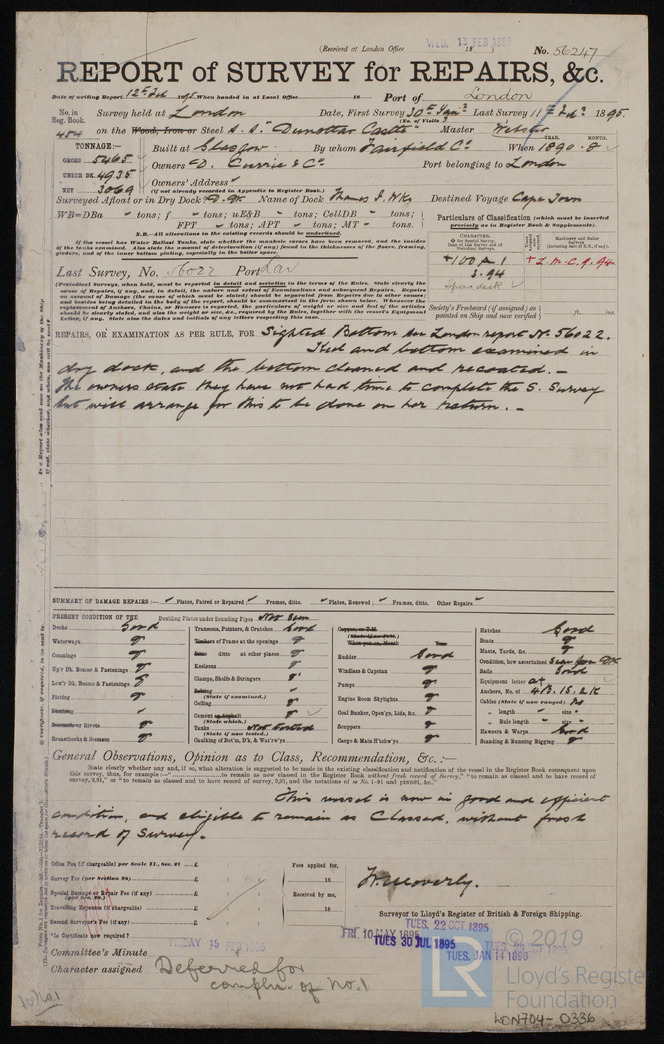 (Received at London Office WED. 13 FEB 1895 18 )
No. 56247
REPORT of SURVEY for REPAIRS, &c.
Date of writing Report 12th Feb 1895 When handed in at Local Office 18 Port of London
No. in Reg. Book. Survey held at London Date, First Survey 30th Jany Last Survey 11th Feb 1895.
(No. of Visits )
454 on the Wood, Iron or Steel S.S. "Dunottar Castle" Master Webster
TONNAGE:— Built at Glasgow By whom Fairfield Co. When 1890 . 8
YEAR. MONTH.
GROSS 5465
UNDER DK. 4935
NET 3069
Owners D. Currie & Co. Port belonging to London
Owners' Address
(if not already recorded in Appendix to Register Book.)
Surveyed Afloat or in Dry Dock D. Dk Name of Dock Thames I. Wks Destined Voyage Cape Town
WB=DBa tons; f tons; uE&B tons; CellDB tons;
FPT tons; APT tons; MT tons.
N.B.—All alterations in the existing records should be underlined.
If the vessel has Water Ballast Tanks, state whether the manhole covers have been removed, and the insides of the tanks examined. Also state the amount of deterioration (if any) found in the thicknesses of the floors, framing, girders, and of the inner bottom plating, especially in the boiler space.
Particulars of Classification (which must be inserted precisely as in Register Book & Supplements).
CHARACTER.
Machinery and Boiler Surveys
+100 A 1
3.94
spar deck
+ L.M.C. 9.94
Last Survey, No. 56022 Port Lon
(Periodical Surveys, when held, must be reported in detail and seriatim in the terms of the Rules. State clearly the cause of Repairs, if any, and, in detail, the nature and extent of Examinations and subsequent Repairs. Repairs on account of Damage (the cause of which must be stated) should be separated from Repairs due to other causes; and besides being detailed in the body of the report, should be summarized in the form shown below. Whenever the replacement of Anchors, Chains, or Hawsers is reported, the particulars of weight or size and test of the articles should be clearly stated, and also the weight or size, &c., required by the Rules, together with the vessel's Equipment Letter, if any. State also the dates and initials of any letters respecting this case.
Society's Freeboard (if assigned) as painted on Ship and now verified ft. ins.
REPAIRS, OR EXAMINATION AS PER RULE, FOR Sighted Bottom see London report No. 56022.
Keel and bottom examined in
dry dock, and the bottom cleaned and recoated. -
The owners state they have not had time to complete the S. Survey
but will arrange for this to be done on her return. -
SUMMARY OF DAMAGE REPAIRS:— Plates, Faired or Repaired; Frames, ditto. Plates, Renewed; Frames, ditto. Other Repairs
PRESENT CONDITION OF THE
Doubling Plates under Sounding Pipes Not Seen
Decks Good
Waterways "
Comings "
Up'r Dk. Beams & Fastenings "
Low'r Dk. Beams & Fastenings "
Plating "
Planking
Treenails or Rivets "
Breasthooks & Stemson "
Transoms, Pointers, & Crutches Good
Timbers of Frame at the openings "
Ditto ditto at other places "
Keelsons "
Clamps, Shelfs & Stringers "
Salting
(State if examined.)
Ceiling "
Cement or Asphalt "
(State which.)
Tanks Not Tested
(State if now tested.)
Caulking of Bot'm, D'k, & Wat'rw'ys
Copper, or Y.M.
Rudder Good
Windlass & Capstan "
Pumps "
Engine Room Skylights "
Coal Bunker, Open'gs, Lids, &c. "
Scuppers "
Cargo & Main H'tchw'ys "
Hatches Good
Boats "
Masts, Yards, &c. "
Condition, how ascertained Seen from Dk
Sails Good
Equipment letter a+
Anchors, No. of 4B. 1S. 2K
Cables (State if now ranged) No
" length " size "
" Rule length " size "
Hawsers & Warps Good
Standing & Running Rigging "
General Observations, Opinion as to Class, Recommendation, &c.:—
State clearly whether any and, if so, what alteration is suggested to be made in the existing classification and notification of the vessel in the Register Book consequent upon this survey, thus, for example:—" to remain as now classed in the Register Book without fresh record of Survey," "to remain as classed and to have record of survey, 9,91," or "to remain as classed and to have record of survey, 9,91, and the notations of ss No. 1-91 and ptND91, &c."
This vessel is now in good and efficient
condition, and eligible to remain as Classed, without fresh
record of Survey.
Office Fee (if chargeable) per Scale II., Sec. 27 £
Survey Fee (per Section 28) £
Special Damage or Repair Fee (if any) £
(per Sec. 28.)
Travelling Expenses (if chargeable) £
Second Surveyor's Fee (if any) £
Fees applied for,
18
Received by me,
18
Surveyor to Lloyd's Register of British & Foreign Shipping.
*Is Certificate now required?
Committee's Minute FRIDAY 15 FEB 1895
FRI. 10 MAY 1895
TUES. 30 JUL 1895
TUES. 22 OCT 1895
TUES. JAN 14 1896
Character assigned Deferred for
compln. of No. 1
© 2019
Lloyd's Register
Foundation
LR
LON704-0336